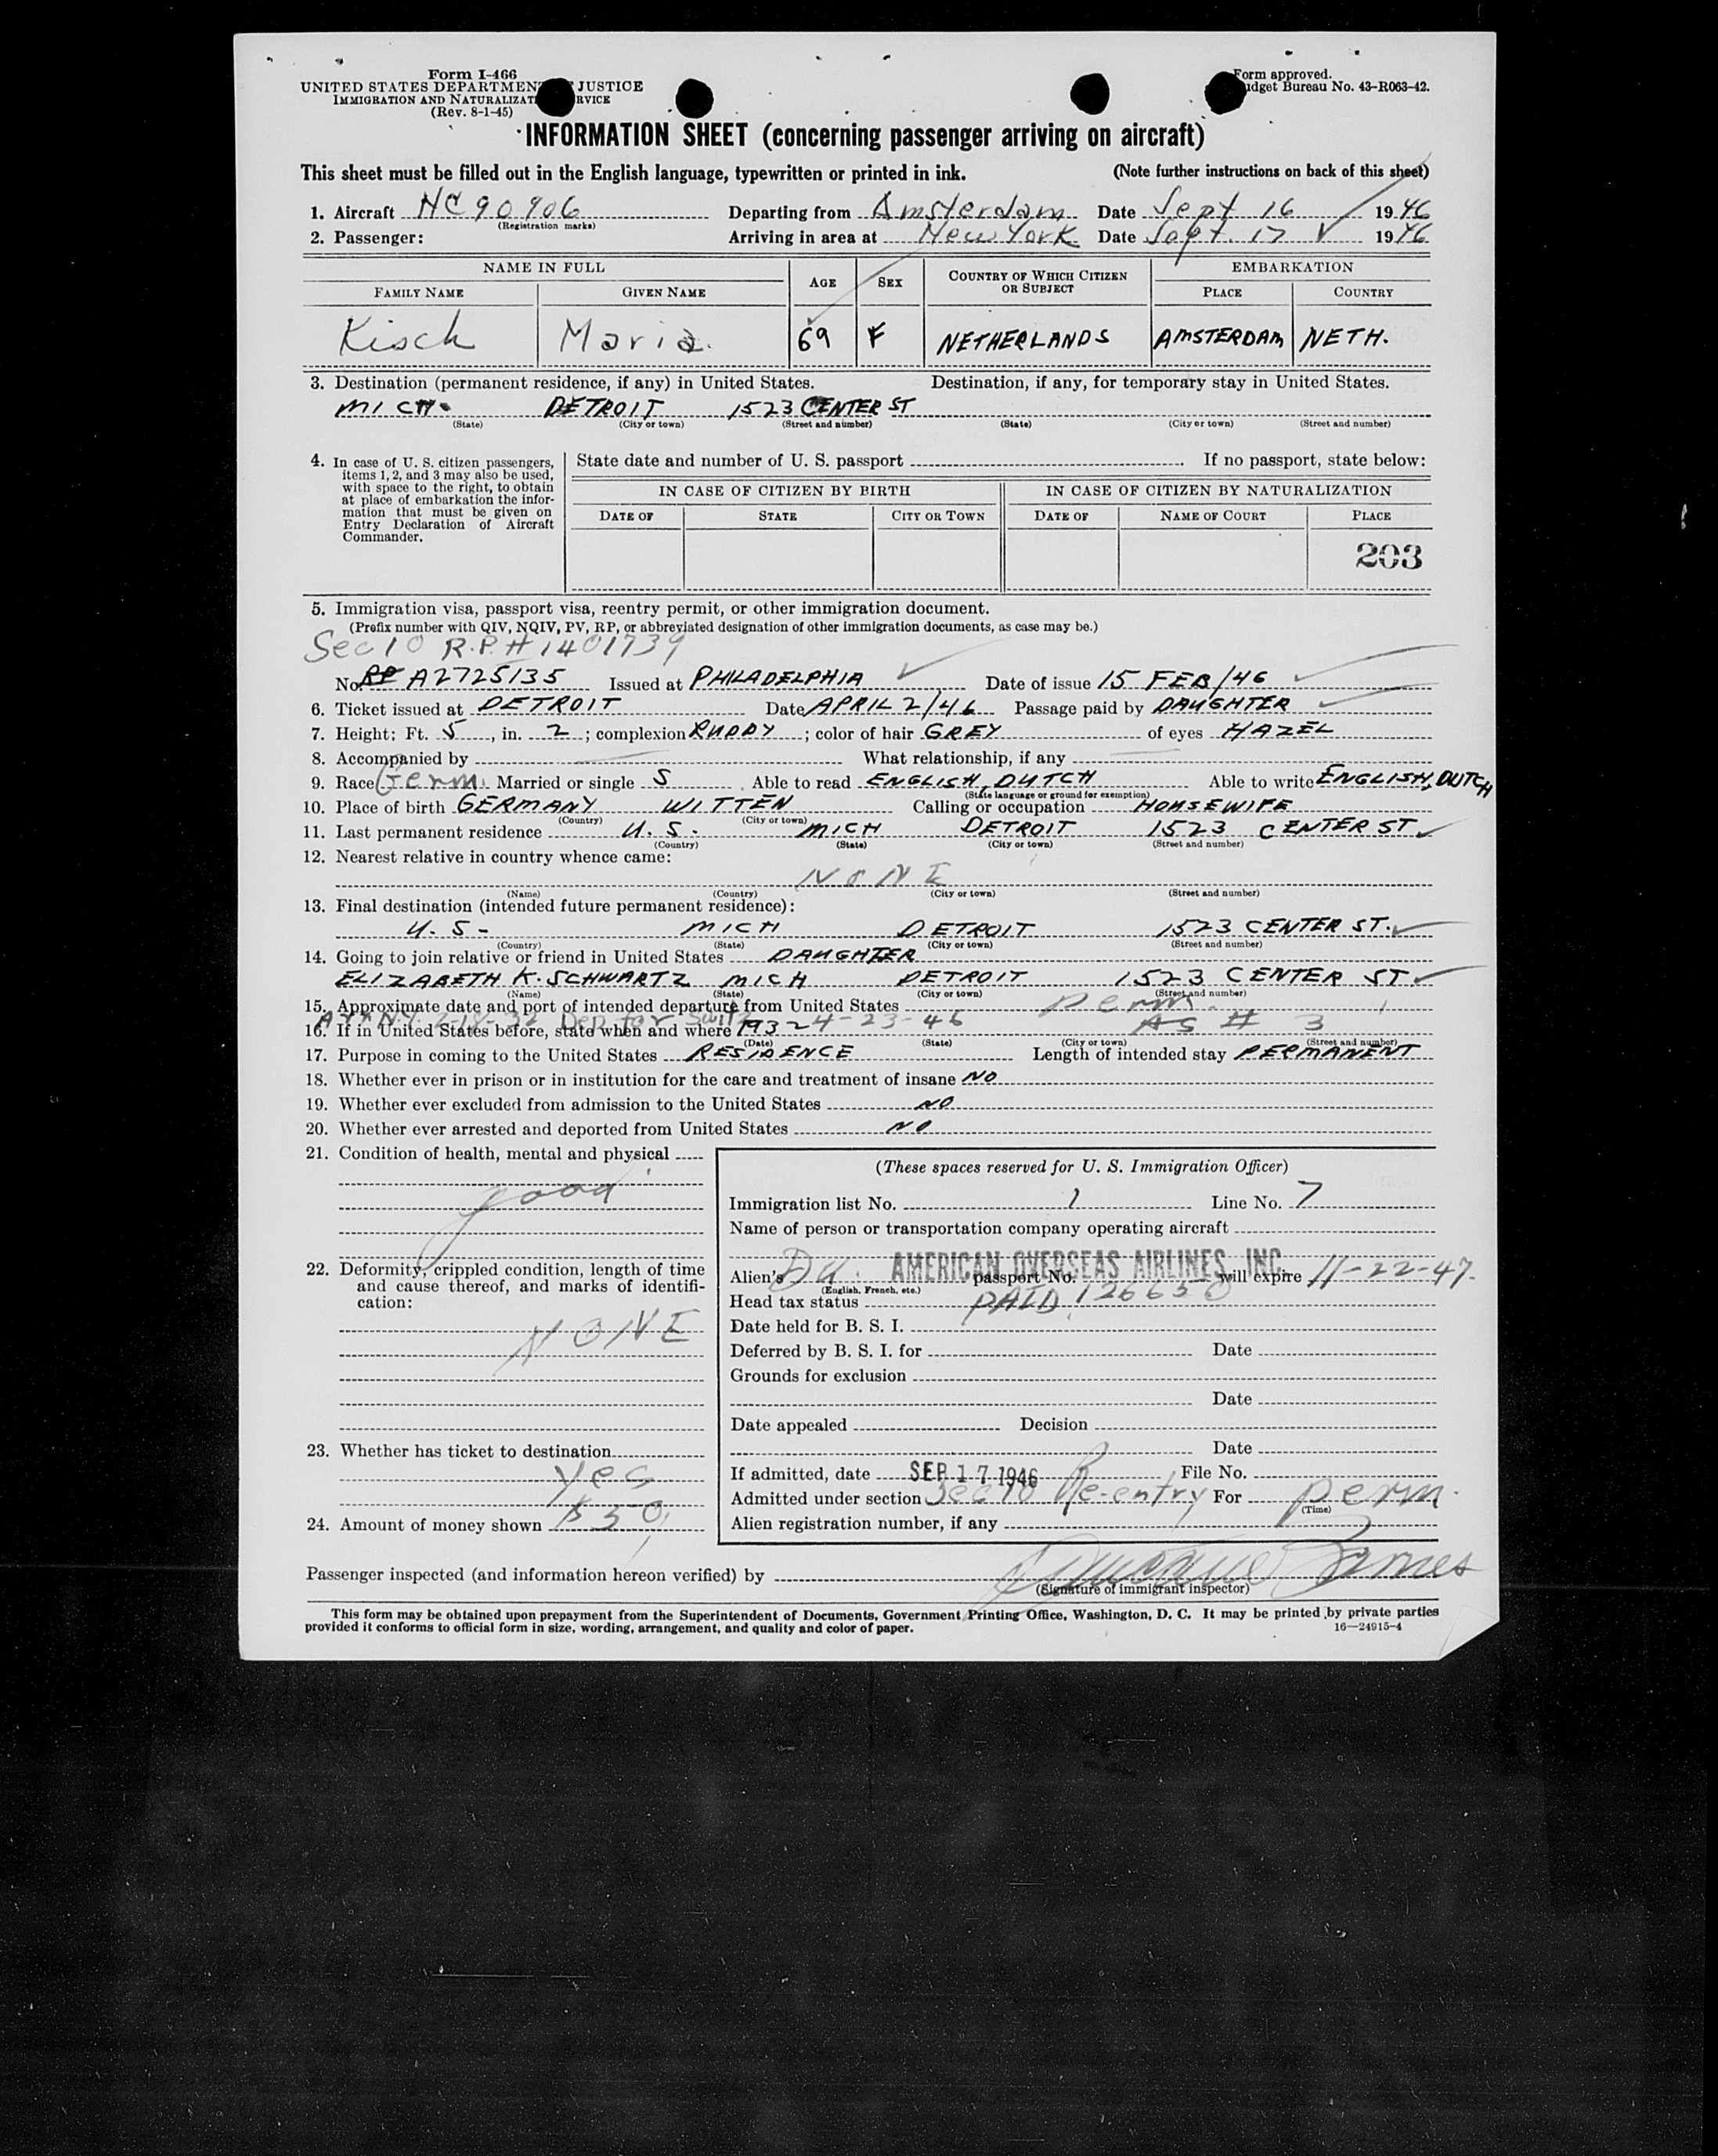 Form I-466
UNITED STATES DEPARTMENT JUSTICE
IMMIGRATION AND NATURALIZAT RVICE
(Rev. 8-1-45)
Form approved.
udget Bureau No. 43-R063-42.
INFORMATION SHEET (concerning passenger arriving on aircraft)
This sheet must be filled out in the English language, typewritten or printed in ink. (Note further instructions on back of this sheet)
1. Aircraft NC 90906 Departing from Amsterdam Date Sept 16 1946
(Registration marks)
2. Passenger: Arriving in area at New York Date Sept. 17 1946
NAME IN FULL AGE SEX COUNTRY OF WHICH CITIZEN OR SUBJECT EMBARKATION
FAMILY NAME GIVEN NAME PLACE COUNTRY
Kisch Maria. 69 F NETHERLANDS AMSTERDAM NETH.
3. Destination (permanent residence, if any) in United States. Destination, if any, for temporary stay in United States.
MICH. DETROIT 1523 CENTER ST
(State) (City or town) (Street and number) (State) (City or town) (Street and number)
4. In case of U. S. citizen passengers, items 1, 2, and 3 may also be used, with space to the right, to obtain at place of embarkation the information that must be given on Entry Declaration of Aircraft Commander.
State date and number of U. S. passport If no passport, state below:
IN CASE OF CITIZEN BY BIRTH IN CASE OF CITIZEN BY NATURALIZATION
DATE OF STATE CITY OR TOWN DATE OF NAME OF COURT PLACE
203
5. Immigration visa, passport visa, reentry permit, or other immigration document.
(Prefix number with QIV, NQIV, PV, RP, or abbreviated designation of other immigration documents, as case may be.)
Sec 10 R.P. # 1401739
No. RP A2725135 Issued at PHILADELPHIA Date of issue 15 FEB/46
6. Ticket issued at DETROIT Date APRIL 2/46 Passage paid by DAUGHTER
7. Height: Ft. 5, in. 2; complexion RUDDY; color of hair GREY of eyes HAZEL
8. Accompanied by What relationship, if any
9. Race Germ. Married or single S Able to read ENGLISH, DUTCH Able to write ENGLISH, DUTCH
(State language or ground for exemption)
10. Place of birth GERMANY WITTEN Calling or occupation HOUSEWIFE
(Country) (City or town)
11. Last permanent residence U. S. MICH DETROIT 1523 CENTER ST
(Country) (State) (City or town) (Street and number)
12. Nearest relative in country whence came:
NONE
(Name) (Country) (City or town) (Street and number)
13. Final destination (intended future permanent residence):
U. S- MICH DETROIT 1523 CENTER ST.
(Country) (State) (City or town) (Street and number)
14. Going to join relative or friend in United States DAUGHTER
ELIZABETH K. SCHWARTZ MICH DETROIT 1523 CENTER ST.
(Name) (State) (City or town) (Street and number)
15. Approximate date and port of intended departure from United States perm.
Dep for Switz
16. If in United States before, state when and where 1932 4-23-46 AS # 3
(Date) (State) (City or town) (Street and number)
17. Purpose in coming to the United States RESIDENCE Length of intended stay PERMANENT
18. Whether ever in prison or in institution for the care and treatment of insane NO
19. Whether ever excluded from admission to the United States NO
20. Whether ever arrested and deported from United States NO
21. Condition of health, mental and physical
good
22. Deformity, crippled condition, length of time and cause thereof, and marks of identification:
NONE
23. Whether has ticket to destination
Yes
24. Amount of money shown $50
(These spaces reserved for U. S. Immigration Officer)
Immigration list No. 1 Line No. 7
Name of person or transportation company operating aircraft
AMERICAN OVERSEAS AIRLINES, INC.
Alien's Du. passport No. 126650 will expire 11-22-47.
(English, French, etc.)
Head tax status PAID
Date held for B. S. I.
Deferred by B. S. I. for Date
Grounds for exclusion
Date
Date appealed Decision
Date
If admitted, date SEP 17 1946 File No.
Admitted under section Sec 10 Re-entry For perm.
(Time)
Alien registration number, if any
Passenger inspected (and information hereon verified) by
(Signature of immigrant inspector)
This form may be obtained upon prepayment from the Superintendent of Documents, Government Printing Office, Washington, D. C. It may be printed by private parties
provided it conforms to official form in size, wording, arrangement, and quality and color of paper. 16—24915-4